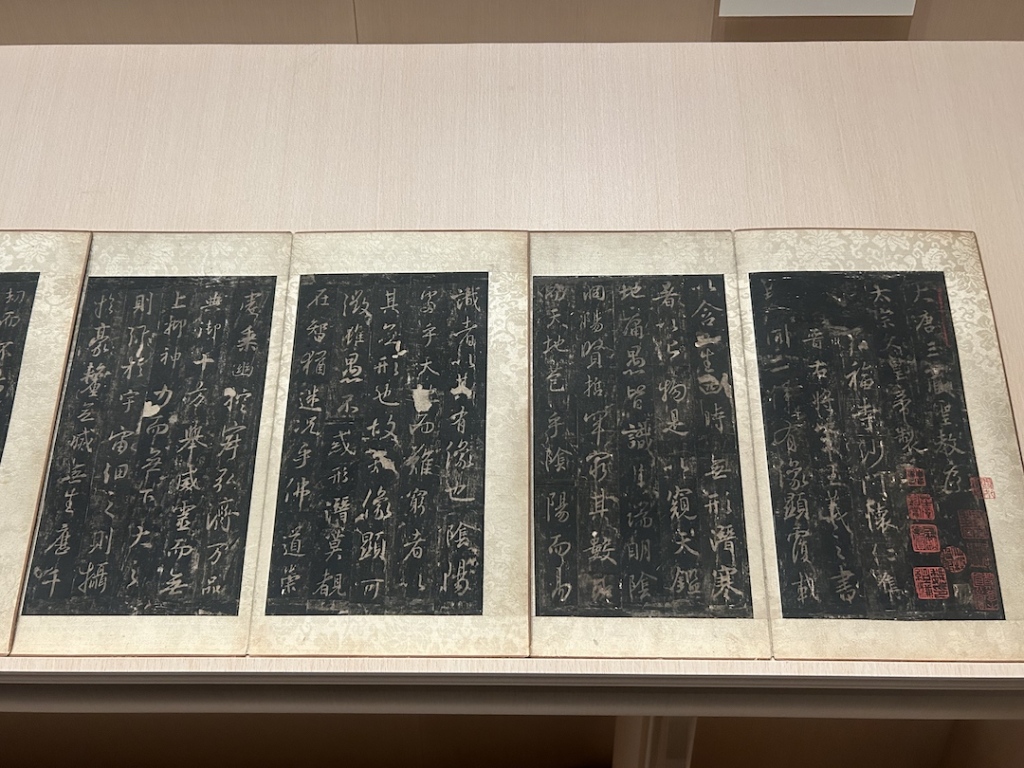 大唐三藏聖教序
太宗文皇帝製
福寺沙門懷仁集
晉右將軍王羲之書
蓋聞二儀有像顯覆載
以含生四時無形潛寒
暑以化物是以窺天鑑
地庸愚皆識其端明陰
洞陽賢哲罕窮其數然
而天地苞乎陰陽而易
識者以其有像也陰陽
處乎天而難窮者以
其無形也故知像顯可
徵雖愚不惑形潛莫覩
在智猶迷況乎佛道崇
虛乘幽控寂弘濟萬品
典御十方舉威靈而無
上抑神力而無下大之
則彌於宇宙細之則攝
於豪釐無滅無生歷千
劫而不